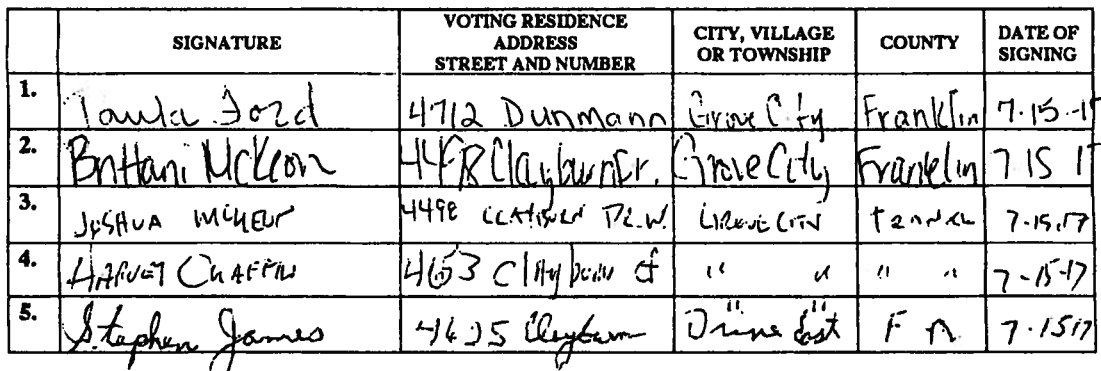 SIGNATURE
VOTING RESIDENCE
ADDRESS
STREET AND NUMBER
CITY, VILLAGE
OR TOWNSHIP
COUNTY
DATE OF
SIGNING
1. Ford 4712 Dunmann Grove City Franklin 7-15-1
2. Brittani McKeon Clayburn Grove City Franklin 7 15 1
3. JOSHUA 4498 7-15-17
4. HARVEY CHAFFIN 4653 Clayburn Ct " " " " 7-15-17
5. Stephen James Clayburn " " F n 7-1517